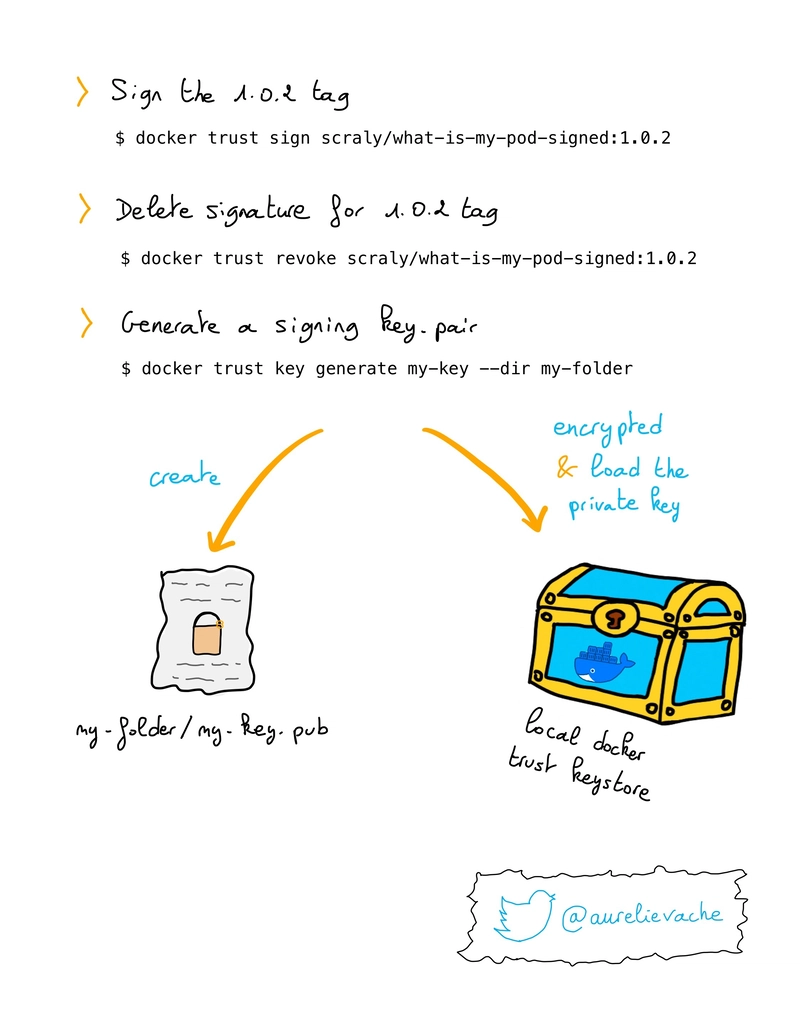 > Sign the 1.0.2 tag
$ docker trust sign scraly/what-is-my-pod-signed:1.0.2
> Delete signature for 1.0.2 tag
$ docker trust revoke scraly/what-is-my-pod-signed:1.0.2
> Generate a signing key-pair
$ docker trust key generate my-key --dir my-folder
create
encrypted
& load the
private key
my-folder/my-key.pub
local docker
trust keystore
@aurelievache